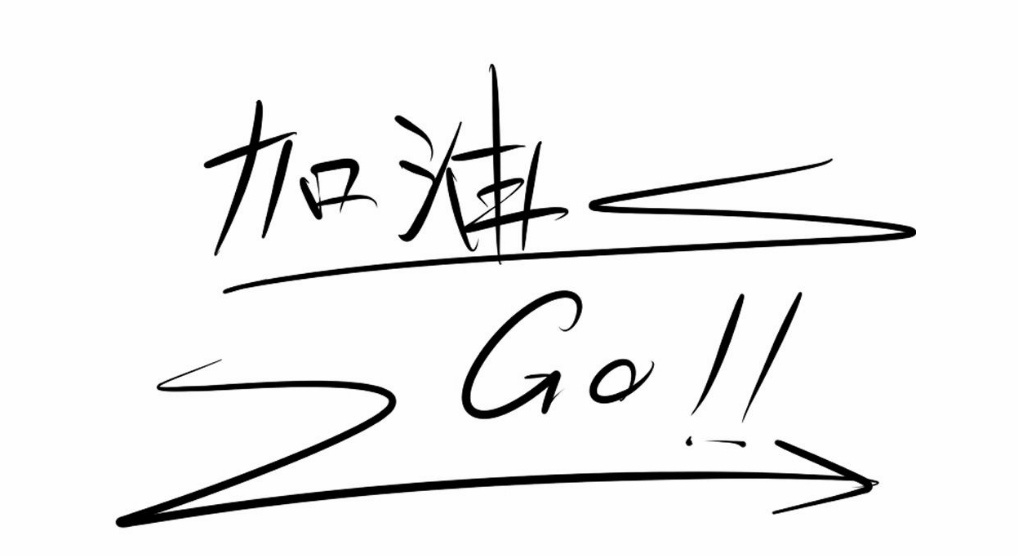 加油
Go!!